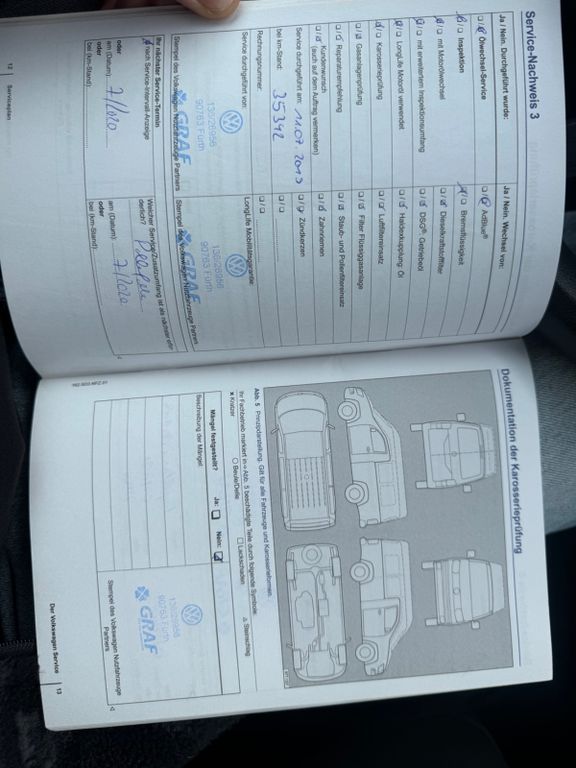 Service-Nachweis 3
Ja / Nein. Durchgeführt wurde:
Ölwechsel-Service
Inspektion
mit Motorölwechsel
mit erweitertem Inspektionsumfang
LongLife Motoröl verwendet
Karosserieprüfung
Gasanlagenprüfung
Reparaturempfehlung
Kundenwunsch
(auch auf dem Auftrag vermerken)
Service durchgeführt am: 11.07.2019
bei km-Stand: 35342
Rechnungsnummer:
Service durchgeführt von:
136/28956
90763 Fürth
GRAF
Stempel des Volkswagen Nutzfahrzeuge Partners
Ihr nächster Service-Termin
nach Service-Intervall-Anzeige
oder
am (Datum): 7/2020
oder
bei (km-Stand):
12 Serviceplan
Ja / Nein. Wechsel von:
AdBlue®
Bremsflüssigkeit
Dieselkraftstofffilter
DSG® Getriebeöl
Haldexkupplung: Öl
Luftfiltereinsatz
Filter Flüssiggasanlage
Staub- und Pollenfiltereinsatz
Zahnriemen
Zündkerzen
LongLife Mobilitätsgarantie:
136/28956
90763 Fürth
GRAF
Stempel des Volkswagen Nutzfahrzeuge Partners
Welcher Service/Zusatzumfang ist als nächster erforderlich?
am (Datum): 7/2020
oder
bei (km-Stand):
Dokumentation der Karosserieprüfung
Abb. 5 Prinzipdarstellung. Gilt für alle Fahrzeuge und Karosserieformen.
Ihr Fachbetrieb markiert in ⇒ Abb. 5 beschädigte Teile durch folgende Symbole:
× Kratzer
○ Beule/Delle
□ Lackschaden
△ Steinschlag
Mängel festgestellt?
Ja:
Nein:
Beschreibung der Mängel:
136/28956
90763 Fürth
GRAF
Stempel des Volkswagen Nutzfahrzeuge Partners
Der Volkswagen Service 13